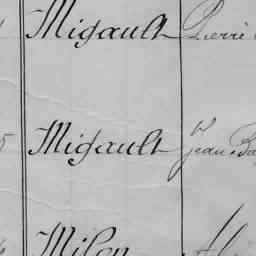 Migault Pierre
5 Migault Jean Ba
Milon